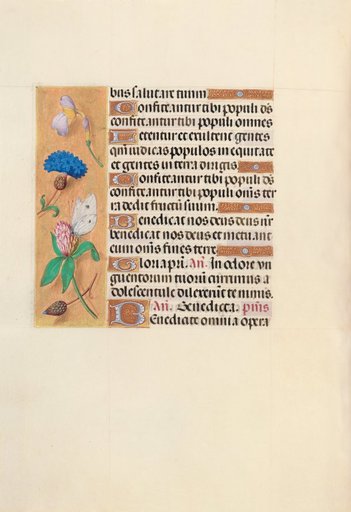 bus salutare tuum.
Confiteantur tibi populi ds
confiteantur tibi populi omnes
Letentur et exultent gentes
qm iudicas populos in equitate
et gentes in terra dirigis.
Confiteantur tibi populi ds
confiteantur tibi populi oms ter
ra dedit fructu suum.
Benedicat nos deus deus nr
benedicat nos deus et metuant
eum oms fines terre
Gloria pri. An. In odore un
guentorum tuoru currimus a
dolescentule dilexerut te nimis.
An. Benedicta. pmis
Benedicite omnia opera